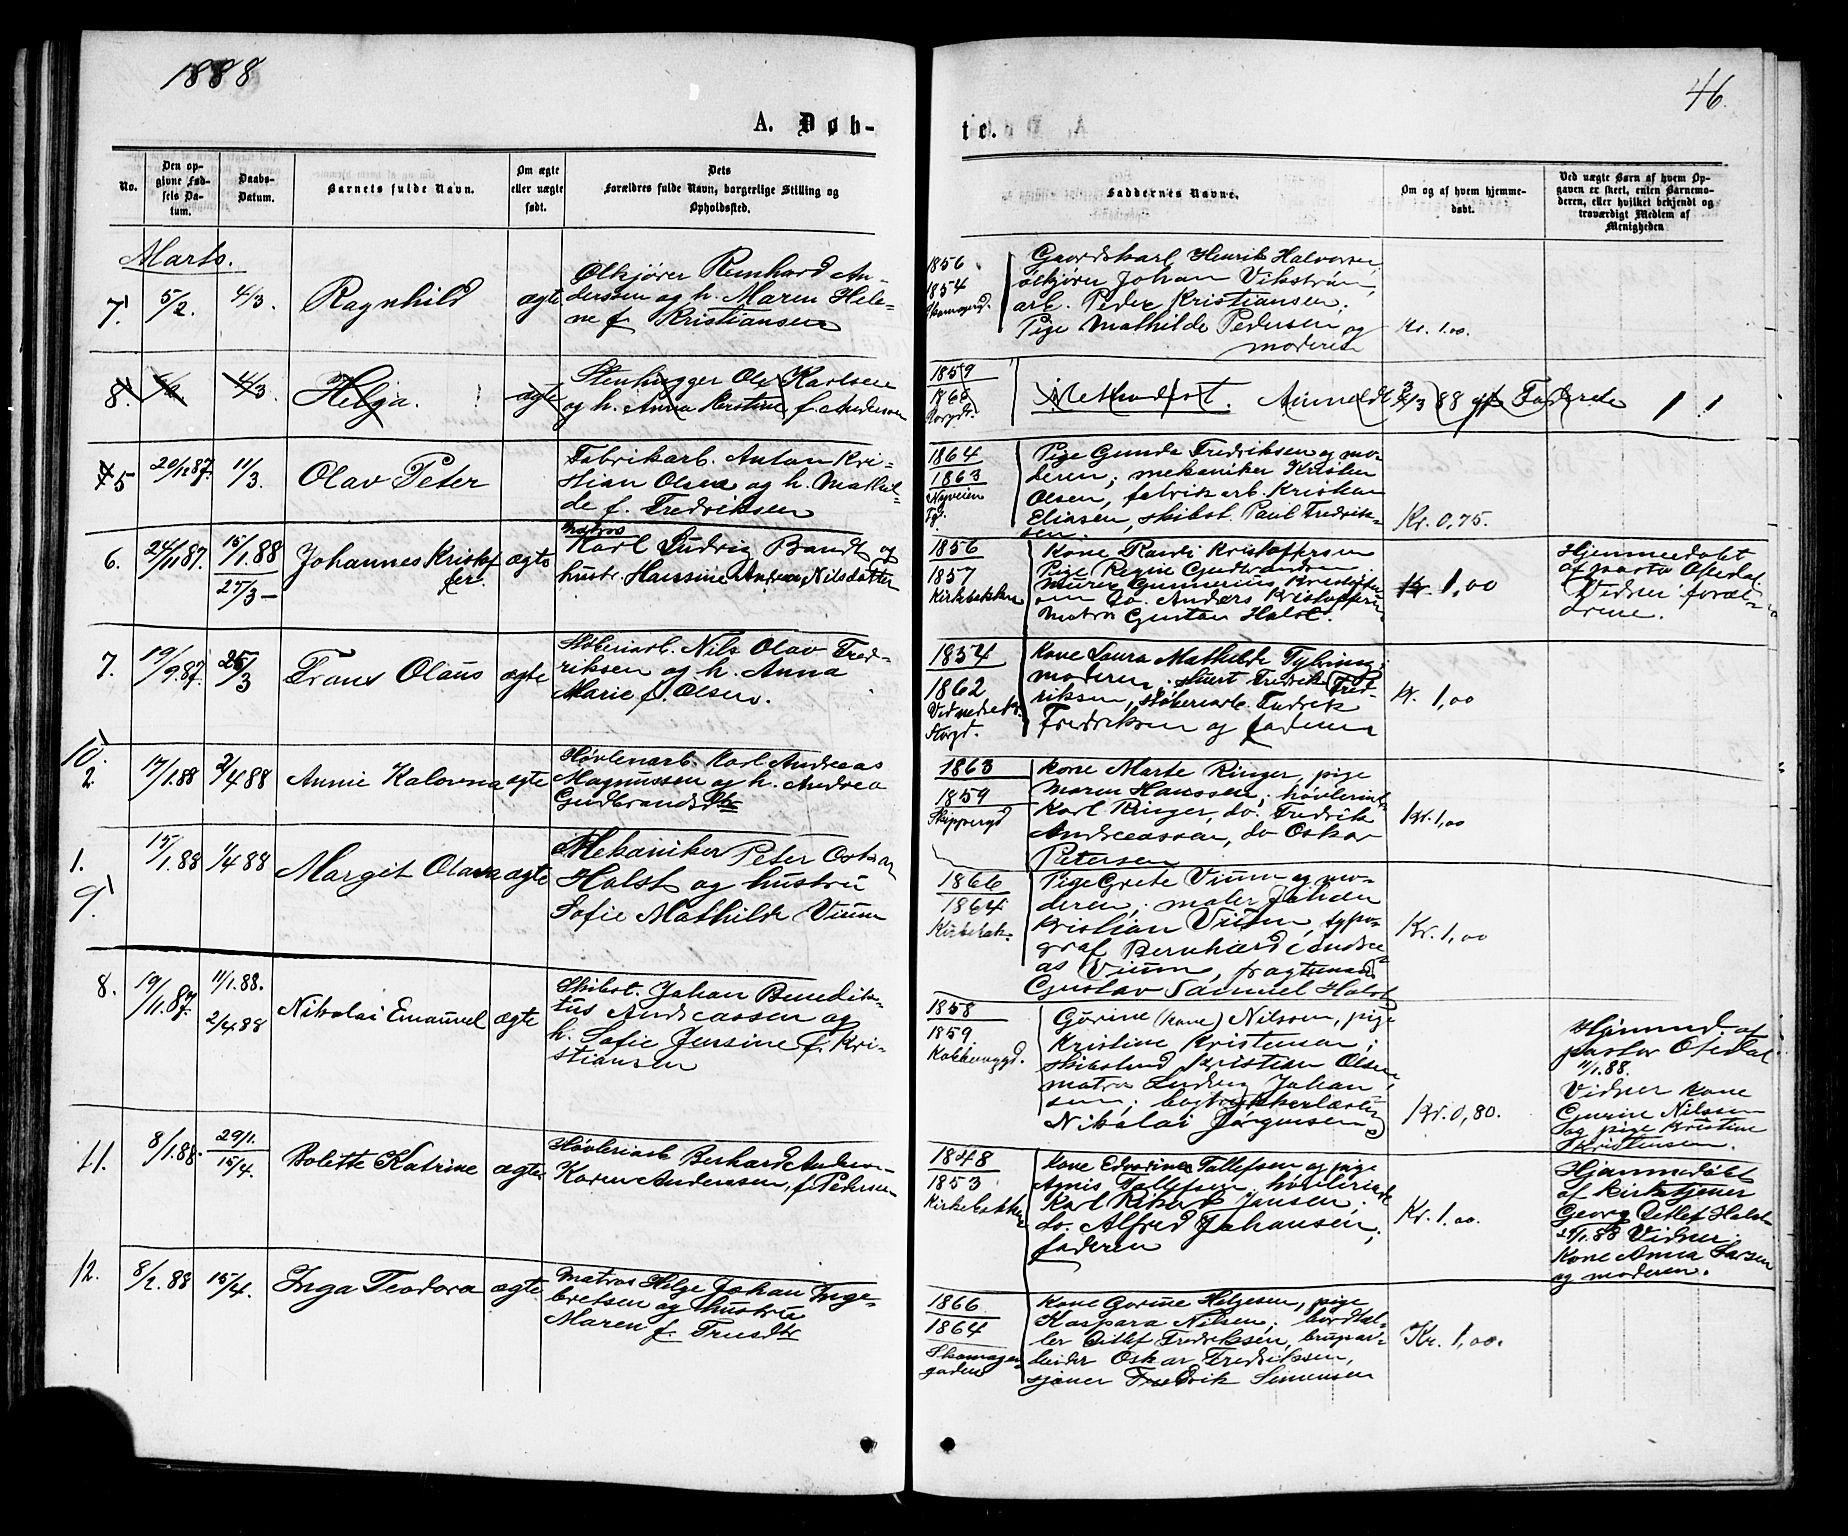 1888
46.
A. Døb-
te.
No.
Den op-
givne Fød-
sels Da-
tum.
Daabs-
Datum.
Barnets fulde Navn.
Om ægte
eller uægte
født.
Dets
Forældres fulde Navn, borgerlige Stilling og
Opholdssted.
Faddernes Navne.
Om og af hvem hjemme-
døbt.
Ved uægte Børn af hvem Op-
gaven er skeet, enten Barnemo-
deren, eller hvilket bekjendt og
troværdigt Medlem af
Menigheden
Marts.
7. 5/2. 4/3. Ragnhild ægte
Ølkjører Reinhard An-
derssen og h. Maren Hele-
ne f. Kristiansen
1856
1854
Skomagergd.
Gaardskarl Henrik Halvorsen,
ølkjører Johan Vikstrøm,
arb. Peder Kristiansen,
Pige Mathilde Pedersen og
moderen
Kr. 1.00.
8. 4/3. Helga. ægte
Stenhugger Ole Karlsen
og h. Anna Kirstine f. Andersen
1859
1860
Storgd.
Methodist. Anmeldt 3/3 88 af Faderen
5 20/12 87. 11/3. Olav Peter
Fabrikarb. Anton Kri-
stian Olsen og h. Mathil-
de f. Fredriksen
1864
1863
Nyveien
Pige Gunda Fredriksen og mo-
deren; mekaniker Kristen
Olsen, fabrikarb. Kristian
Eliasen, skibst. Paul Fredrik-
sen.
Kr. 0,75.
6. 24/11 87. 15/1.88 25/3 Johannes Kristof
fer. ægte
Matros
Karl Ludvig Bandt og
hustr. Hansine Andrea Nilsdatter
1856
1857
Kirkebakken
Kone Randi Kristoffersen
Pige Regine Gudbrandsen
Murer Gunnerius Kristoffer
sen do. Anders Kristoffersen
Matros Gustav Holst.
Kr. 1,00
Hjemmedøbt
af pastor Opedal
Vidner foræl-
drene.
7. 19/9 87. 25/3 Frans Olaus ægte
Støberiarb. Nils Olav Fred-
riksen og h. Anna
Marie f. Olsen.
1854
1862
Storgd.
Kone Laura Mathilde Tylvin
moderen, Fredrik Fred-
riksen, støberiarb. Fredrik
Fredriksen og faderen
Kr. 1,00
10.
2. 17/1.88 2/4 88 Annie Kalovna ægte
Høvleriarb. Karl Andreas
Magnussen og h. Andrea
Gudbrandsdtr
1863
1859
Skippergd
Kone Marte Ringer, pige
Maren Hanssen; høvleriarb.
Karl Ringer, do. Fredrik
Andreassen, do Oskar
Petersen
Kr. 1,00
1.
9. 15/1.88 1/4 88 Margit Olava ægte
Mekaniker Peter Oskar
Holst og hustru
Sofie Mathilde Vium
1866
1864
Kirkebak.
Pige Grete Vium og mo-
deren; maler Johan
Kristian Vium, typo-
graf Bernhard Andre-
as Vium, fragtemand
Gustav Samuel Holst
Kr. 1,00
8. 19/11.87. 11/1.88. 2/4.88 Nikolai Emanuel ægte
Skibst. Johan Benedik-
tus Andreassen og
h. Sofie Jensine f. Kri-
stiansen
1858
1859
Gurine (kone) Nilssen, pige
Kristine Kristensen;
skibstmd Kristian Olsen
matros Ludvig Johan
sen; bogtrykkerlærling
Nikolai Jørgensen
Kr. 0,80.
Hjemmd. af
pastor Opedal
11/1.88.
Vidner kone
Gurine Nilssen
og pige Kristine
Kristensen.
11. 8/1.88. 29/1. 15/4. Bolette Katrine ægte
Høvleriarb Berhard Anders-
Karen Anderssen, f. Peders-
1848
1853
Kirkebakken
Kone Edvardine Tollefsen og pige
Agnis Tollefsen, høvleriarb
Karl Rikard Jansen,
do. Alfred Johansen,
faderen
Kr. 1.00.
Hjemmedøbt
af kirketjener
Georg Ditlef Holst
29/1.88 Vidner:
Kone Anna Larsen
og moderen.
12. 8/2.88 15/4. Inga Teodora ægte
Matros Helge Johan Inge-
bretsen og hustru
Maren f. Truedtr
1866
1864
Skomager-
gaden
Kone Gurine Helgesen, pige
Kaspara Nilsen,
ler Ditlef Fredriksen, brugsar-
beider Oskar Fredriksen,
sjauer Fredrik Simensen
Kr. 1,00.